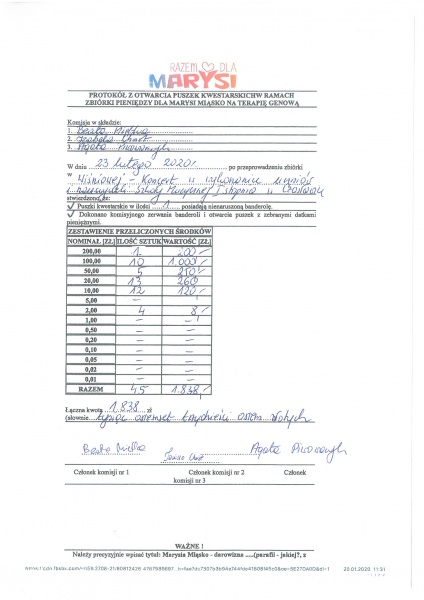 RAZEM DLA
MARYSI
PROTOKÓŁ Z OTWARCIA PUSZEK KWESTARSKICHW RAMACH
ZBIÓRKI PIENIĘDZY DLA MARYSI MIĄSKO NA TERAPIĘ GENOWĄ
Komisja w składzie:
1. Beata
2.
3. Agata
W dniu 23 lutego 2020r po przeprowadzeniu zbiórki
w Wiśniowej - Koncert w wykonaniu uczniów
i nauczycieli Szkoły Muzycznej I stopnia w
stwierdzono, że:
✓ Puszki kwestarskie w ilości 1 posiadają nienaruszoną banderolę.
✓ Dokonano komisyjnego zerwania banderoli i otwarcia puszek z zebranymi datkami
pieniężnymi.
ZESTAWIENIE PRZELICZONYCH ŚRODKÓW
NOMINAŁ [ZŁ] ILOŚĆ SZTUK WARTOŚĆ [ZŁ]
200,00 1 200,-
100,00 10 1.000,-
50,00 5 250,-
20,00 13 260
10,00 12 120,-
5,00 - -
2,00 4 8,-
1,00 - -
0,50 - -
0,20 - -
0,10 - -
0,05 - -
0,02 - -
0,01 - -
RAZEM 45 1.838,-
Łączna kwota 1.838 zł
(słownie tysiąc osiemset trzydzieści osiem złotych
Beata Agata
Członek komisji nr 1 Członek komisji nr 2 Członek
komisji nr 3
WAŻNE !
Należy precyzyjnie wpisać tytuł: Marysia Miąsko - darowizna ....(parafii - jakiej?, z
20.01.2020, 11:51